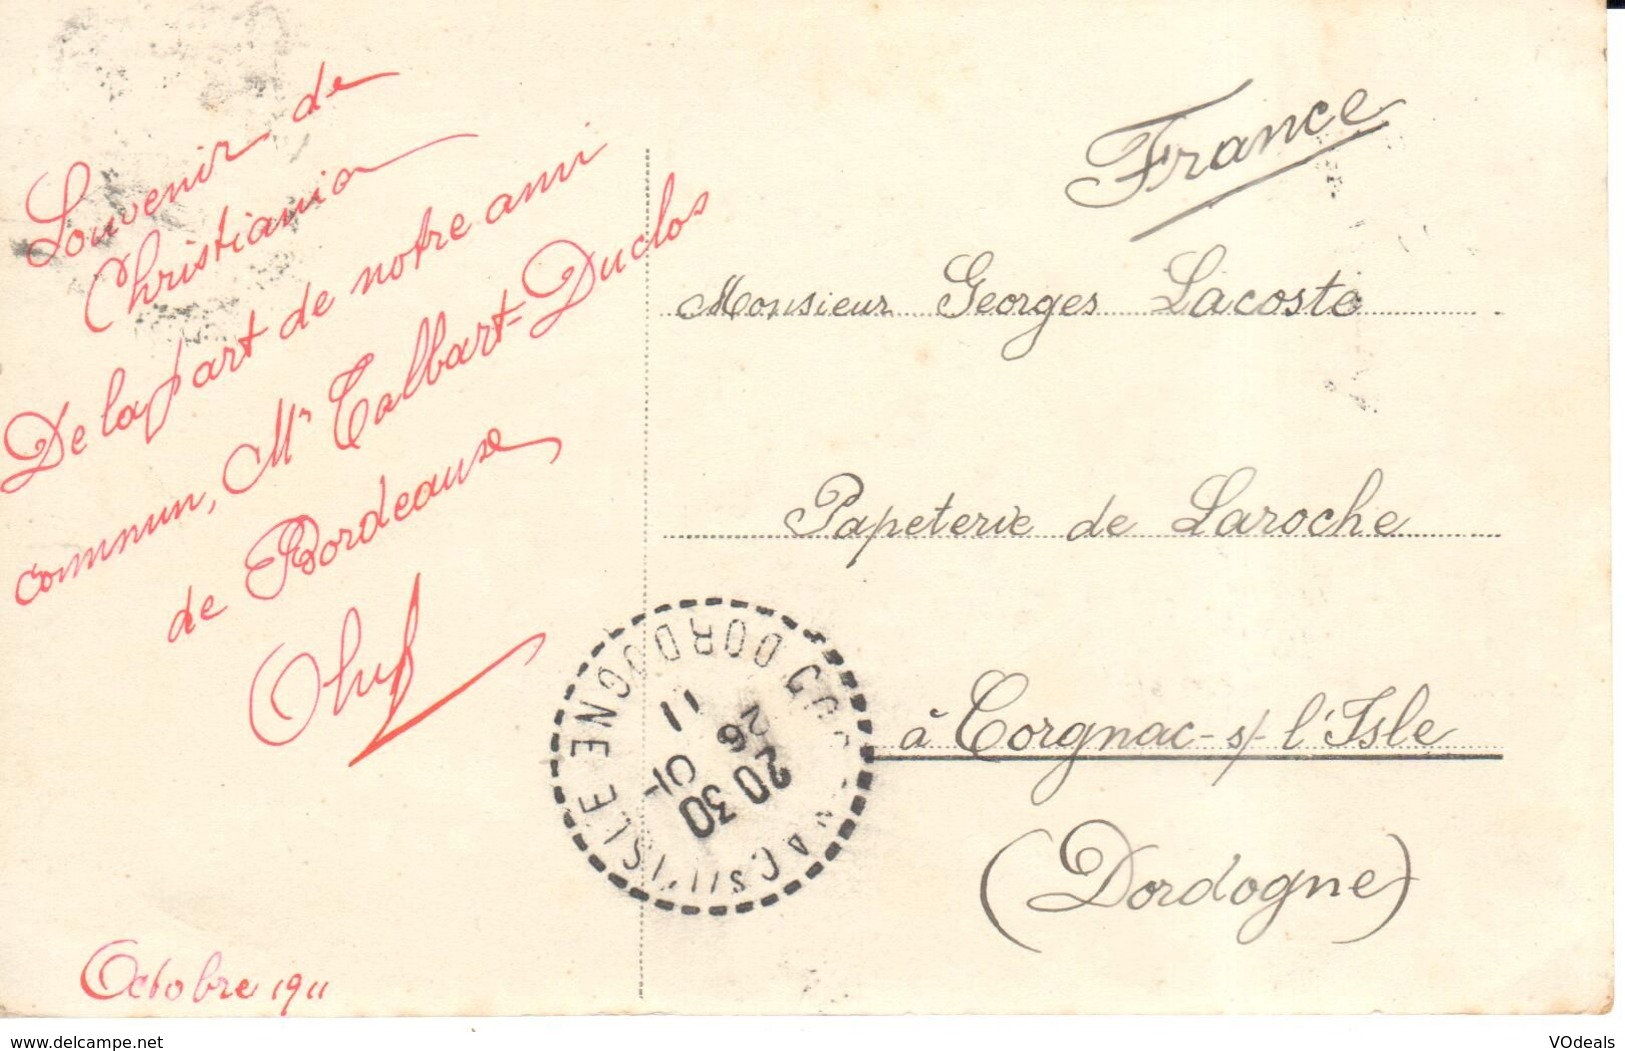 Souvenir de
Christiania
De la part de notre ami
commun, Mr Talbart-Duclos
de Bordeaux
Oluf
Octobre 1911
France
Monsieur Georges Lacoste
Papeterie de Laroche
à Corgnac-s/-l'Isle
(Dordogne)
DORDOGNE
20 30
26 -10
11
delcampe.net
VOdeals